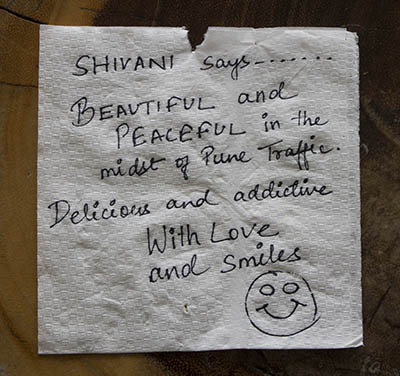 SHIVANI says-------
BEAUTIFUL and
PEACEFUL in the
midst of Pune Traffic.
Delicious and addictive
With Love
and Smiles